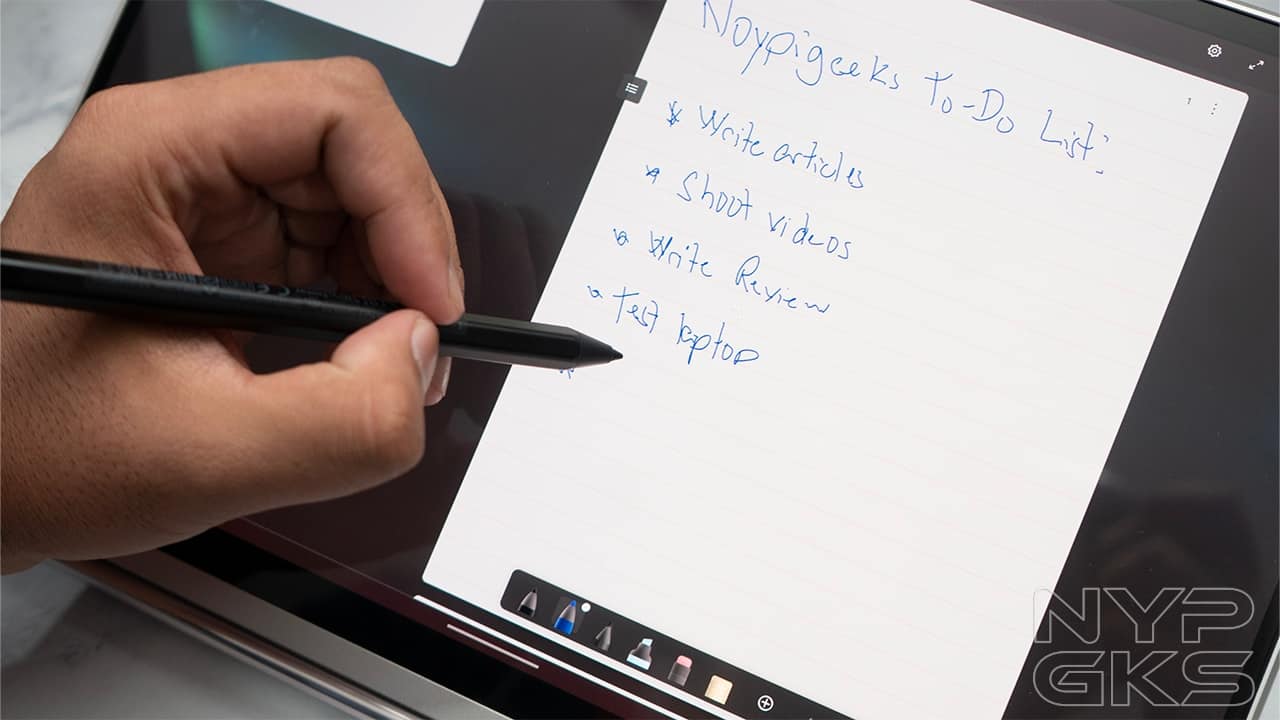 Noypigeeks To-Do List:
* Write articles
* Shoot videos
* Write Review
* Test laptop
*
1
NYP
GKS